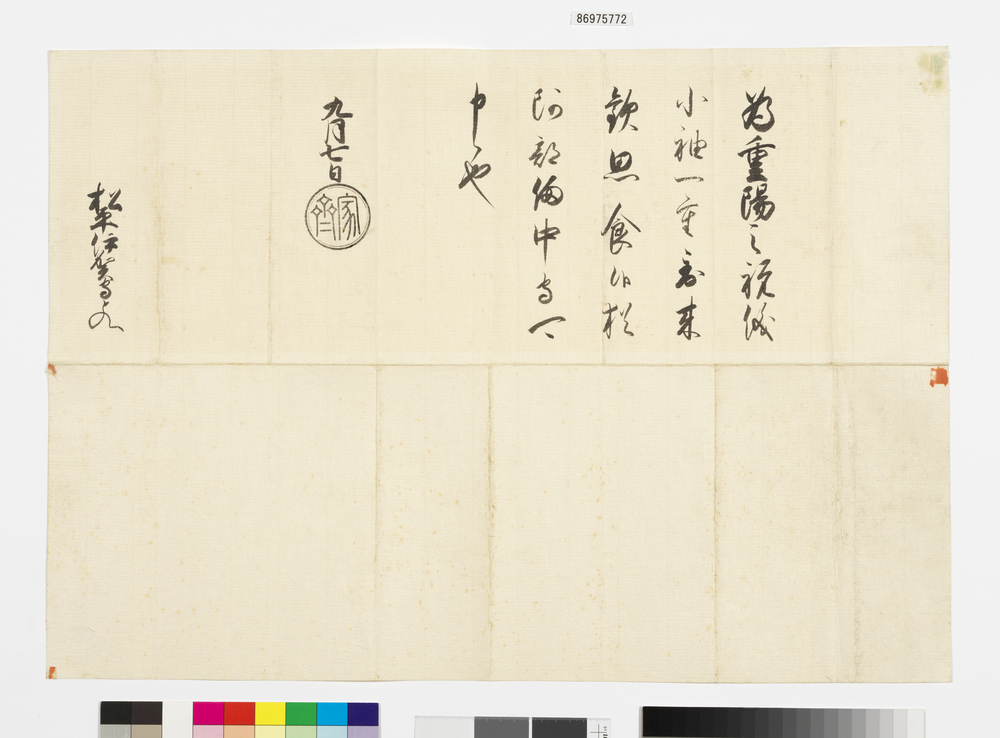 86975772
為重陽之祝儀
小袖一重到来
歓思食候猶
阿部備中守可
申候也
九月七日
家齊
松平伊賀守とのへ